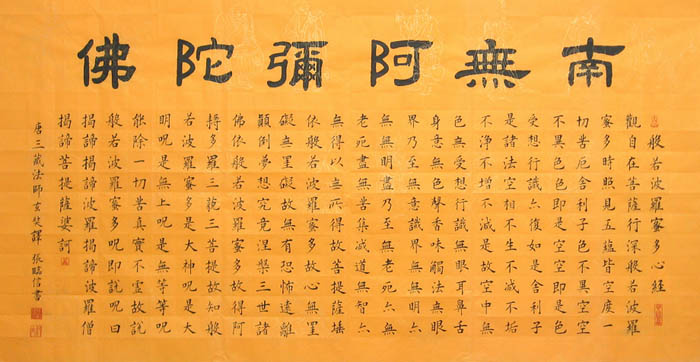 南無阿彌陀佛
般若波羅蜜多心經
觀自在菩薩行深般若波羅
蜜多時照見五蘊皆空度一
切苦厄舍利子色不異空空
不異色色即是空空即是色
受想行識亦復如是舍利子
是諸法空相不生不滅不垢
不淨不增不減是故空中無
色無受想行識無眼耳鼻舌
身意無色聲香味觸法無眼
界乃至無意識界無無明亦
無無明盡乃至無老死亦無
老死盡無苦集滅道無智亦
無得以無所得故菩提薩埵
依般若波羅蜜多故心無罣
礙無罣礙故無有恐怖遠離
顛倒夢想究竟涅槃三世諸
佛依般若波羅蜜多故得阿
耨多羅三藐三菩提故知般
若波羅蜜多是大神呪是大
明呪是無上呪是無等等呪
能除一切苦真實不虛故說
般若波羅蜜多呪即說呪曰
揭諦揭諦波羅揭諦波羅僧
揭諦菩提薩婆訶
唐三藏法師玄奘譯 張臨信書